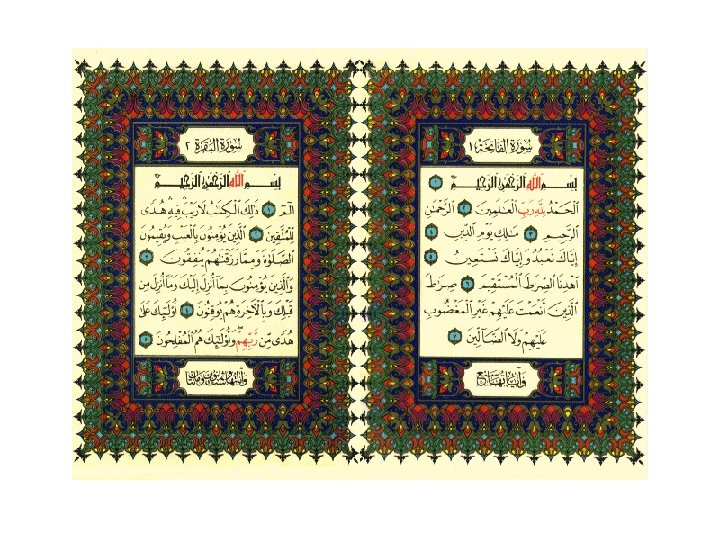 سُورَةُ الْفَاتِحَةِ ١
بِسْمِ اللَّهِ الرَّحْمَٰنِ الرَّحِيمِ
الْحَمْدُ لِلَّهِ رَبِّ الْعَٰلَمِينَ الرَّحْمَٰنِ
الرَّحِيمِ مَٰلِكِ يَوْمِ الدِّينِ
إِيَّاكَ نَعْبُدُ وَإِيَّاكَ نَسْتَعِينُ
اهْدِنَا الصِّرَٰطَ الْمُسْتَقِيمَ صِرَٰطَ
الَّذِينَ أَنْعَمْتَ عَلَيْهِمْ غَيْرِ الْمَغْضُوبِ
عَلَيْهِمْ وَلَا الضَّالِّينَ
وَآيَاتُهَا سَبْعٌ
سُورَةُ الْبَقَرَةِ ٢
بِسْمِ اللَّهِ الرَّحْمَٰنِ الرَّحِيمِ
الٓمٓ ذَٰلِكَ الْكِتَٰبُ لَا رَيْبَ فِيهِ هُدًى
لِّلْمُتَّقِينَ الَّذِينَ يُؤْمِنُونَ بِالْغَيْبِ وَيُقِيمُونَ
الصَّلَوٰةَ وَمِمَّا رَزَقْنَٰهُمْ يُنفِقُونَ
وَالَّذِينَ يُؤْمِنُونَ بِمَا أُنزِلَ إِلَيْكَ وَمَا أُنزِلَ مِن
قَبْلِكَ وَبِالْآخِرَةِ هُمْ يُوقِنُونَ أُولَٰئِكَ عَلَىٰ
هُدًى مِّن رَّبِّهِمْ وَأُولَٰئِكَ هُمُ الْمُفْلِحُونَ